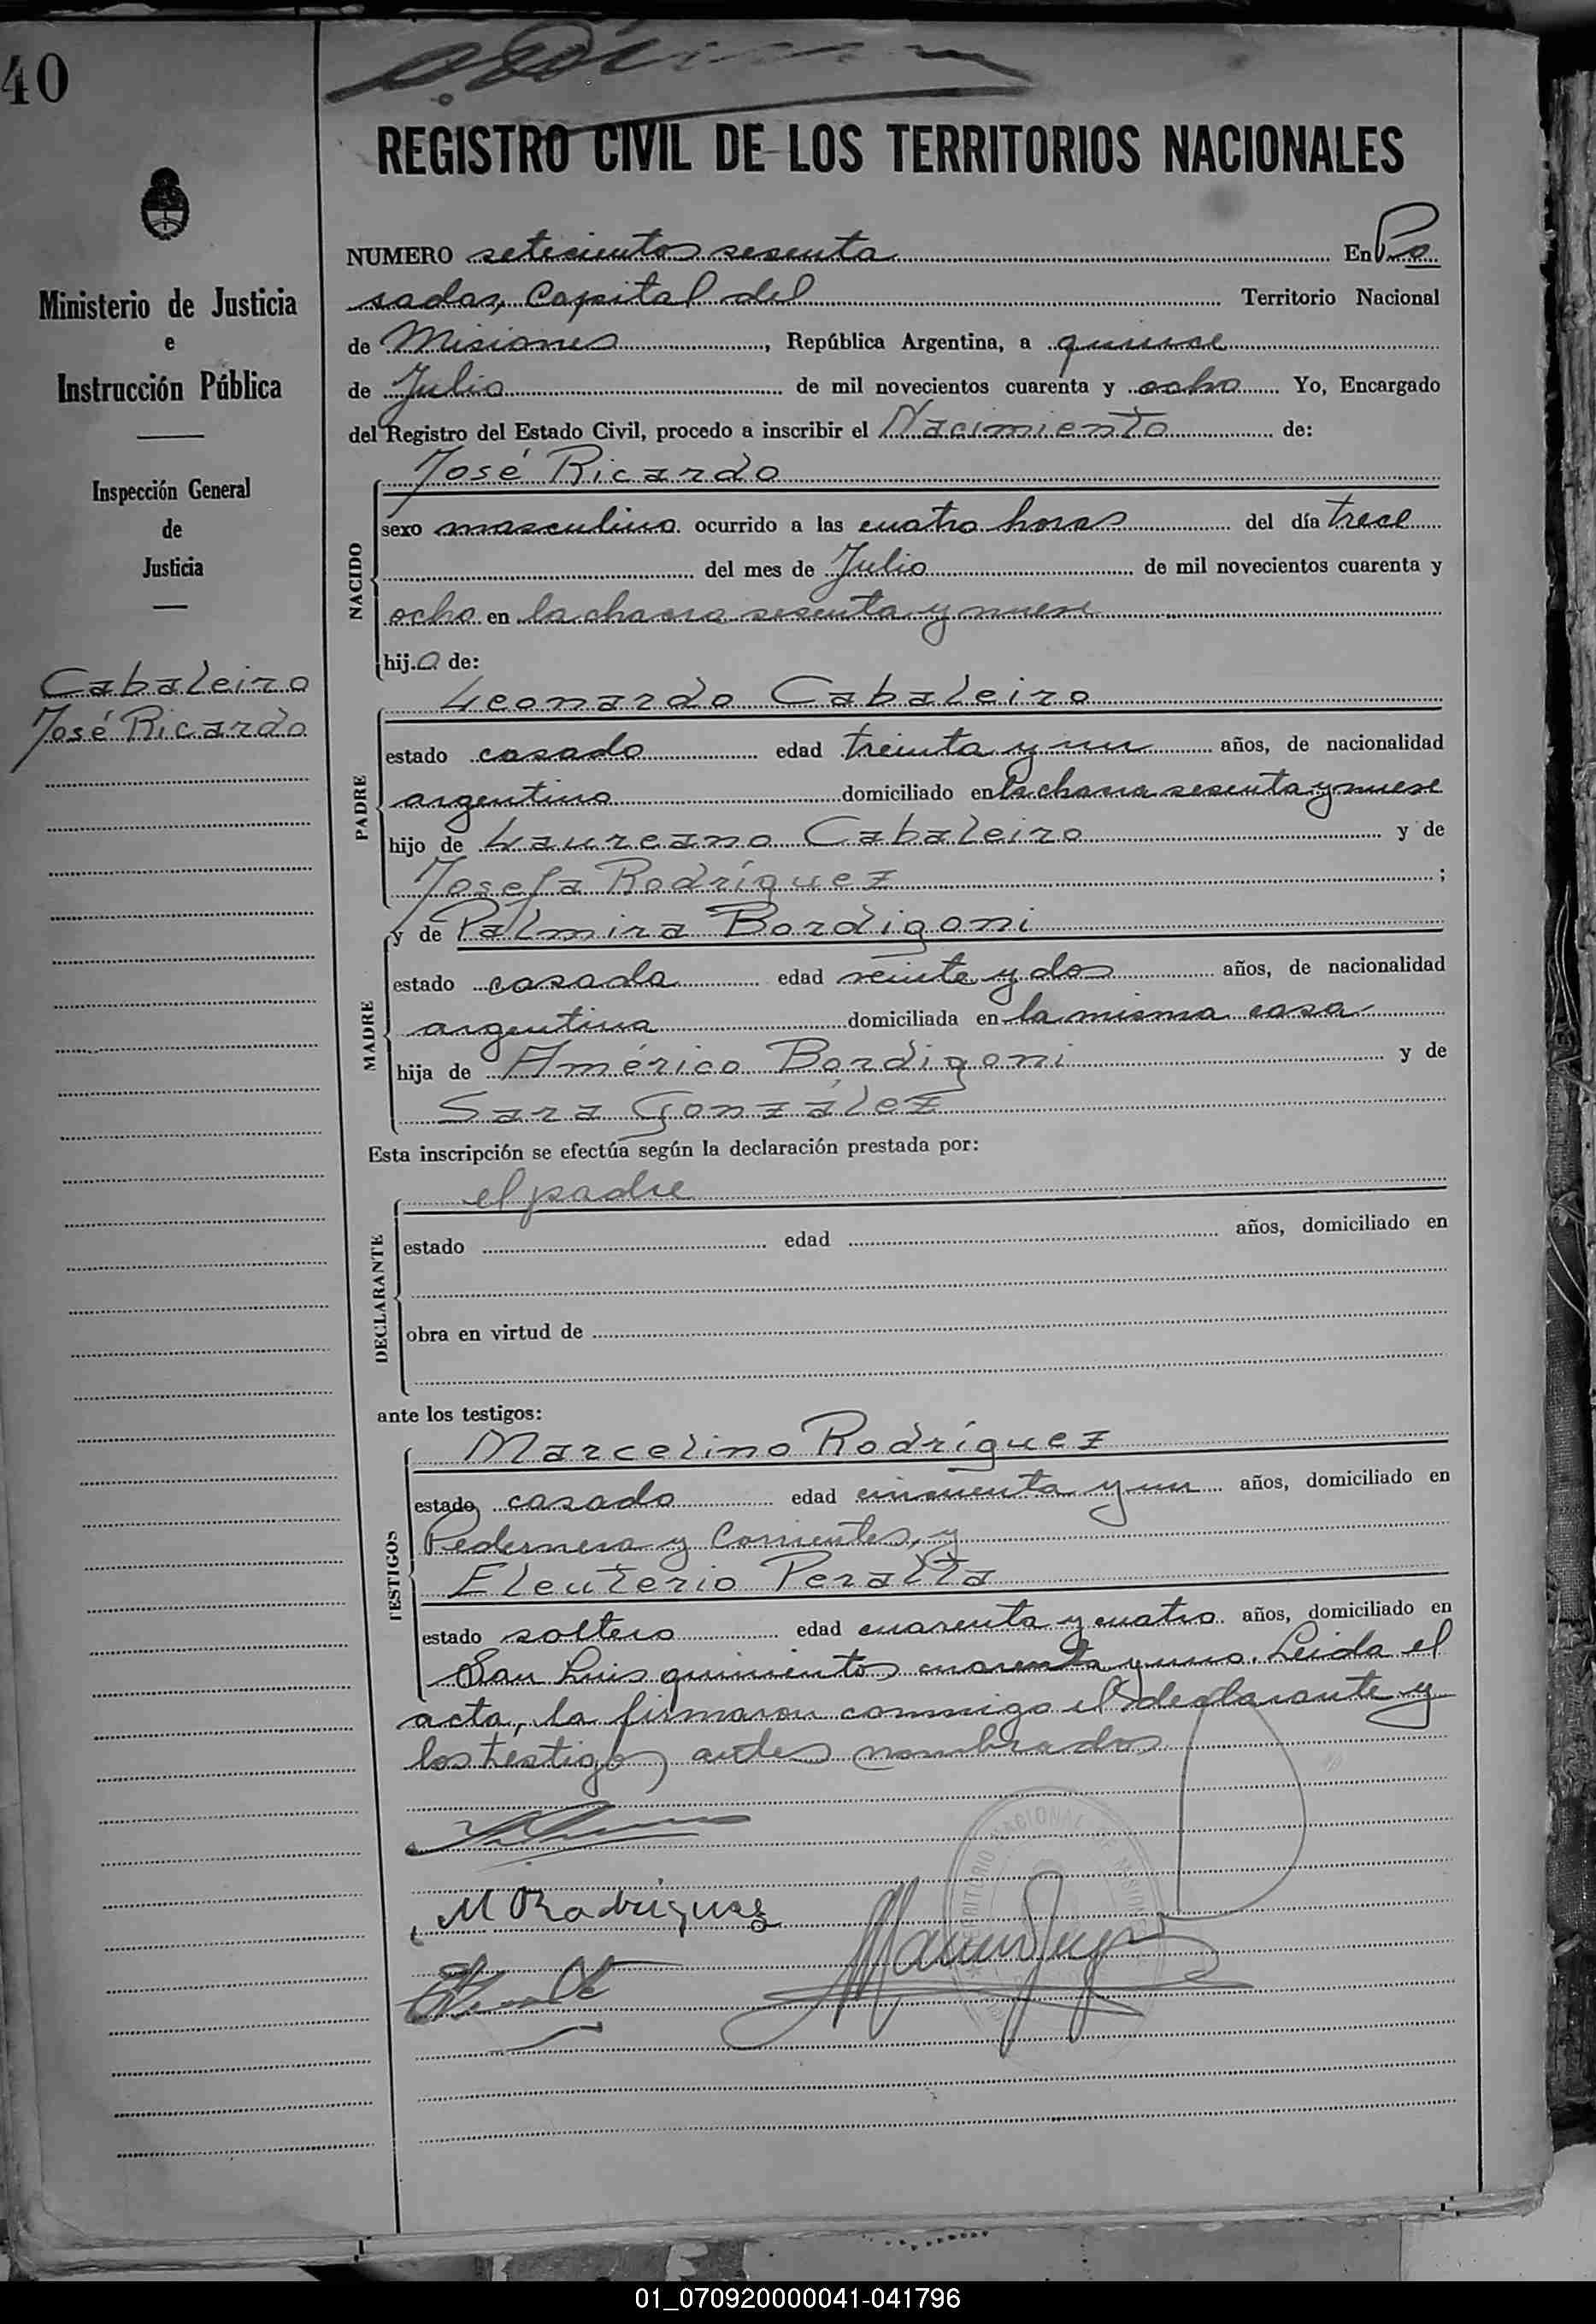 40
REGISTRO CIVIL DE LOS TERRITORIOS NACIONALES
Ministerio de Justicia
e
Instrucción Pública
Inspección General
de
Justicia
Cabaleiro
José Ricardo
NUMERO setecientos sesenta En Po
sadas, Capital del Territorio Nacional
de Misiones, República Argentina, a quince
de Julio de mil novecientos cuarenta y ocho Yo, Encargado
del Registro del Estado Civil, procedo a inscribir el Nacimiento de:
NACIDO
José Ricardo
sexo masculino ocurrido a las cuatro horas del día trece
del mes de Julio de mil novecientos cuarenta y
ocho en la chacra sesenta y nueve
hijo de:
PADRE
Leonardo Cabaleiro
estado casado edad treinta y un años, de nacionalidad
argentino domiciliado en la chacra sesenta y nueve
hijo de Laureano Cabaleiro y de
Josefa Rodríguez ;
MADRE
y de Palmira Bordigoni
estado casada edad veinte y dos años, de nacionalidad
argentina domiciliada en la misma casa
hija de Américo Bordigoni y de
Sara González
Esta inscripción se efectúa según la declaración prestada por:
DECLARANTE
el padre
estado edad años, domiciliado en
obra en virtud de
ante los testigos:
TESTIGOS
Marcelino Rodríguez
estado casado edad cincuenta y un años, domiciliado en
Pedernera y Corrientes, y
Eleuterio Peralta
estado soltero edad cuarenta y cuatro años, domiciliado en
San Luis quinientos cuarenta y uno. Leida el
acta, la firmaron conmigo el declarante y
los testigos antes nombrados
M Rodriguez
TERRITORIO NACIONAL DE MISIONES
01_070920000041-041796